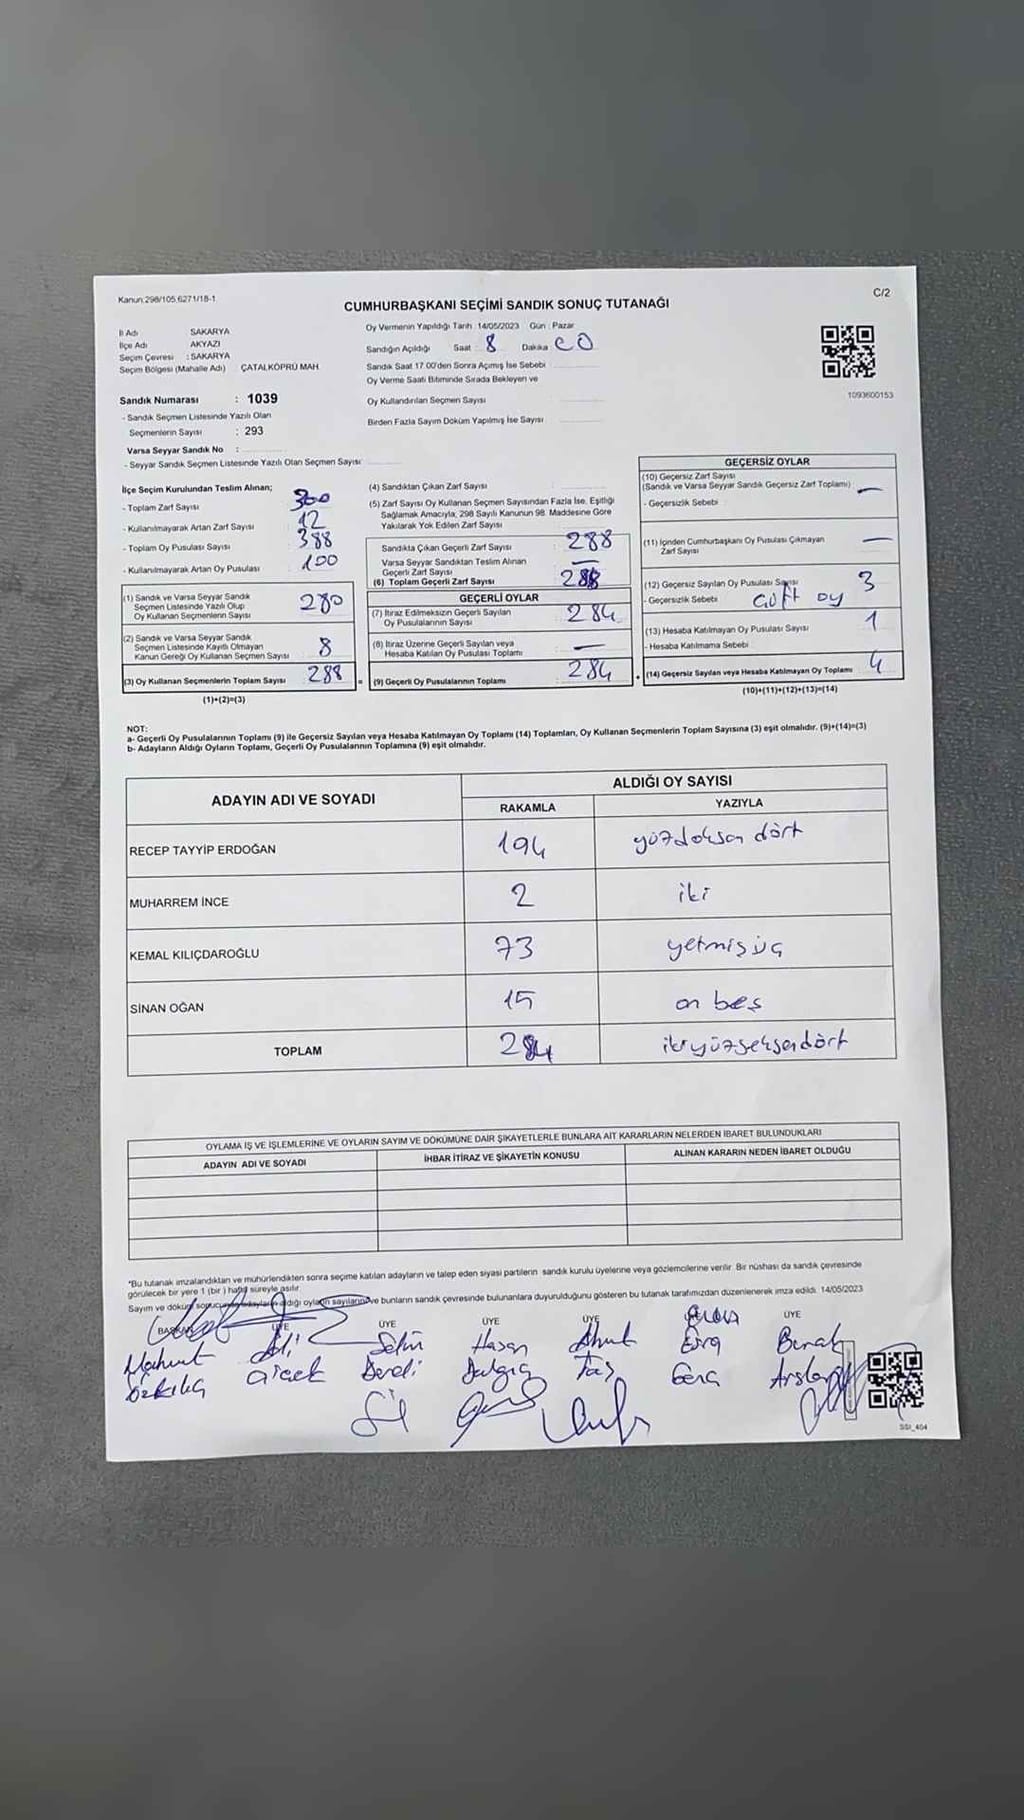 Kanun:298/105,6271/18-1
C/2
CUMHURBAŞKANI SEÇİMİ SANDIK SONUÇ TUTANAĞI
İl Adı SAKARYA
İlçe Adı AKYAZI
Seçim Çevresi : SAKARYA
Seçim Bölgesi (Mahalle Adı) ÇATALKÖPRÜ MAH.
Oy Vermenin Yapıldığı Tarih : 14/05/2023 Gün : Pazar
Sandığın Açıldığı Saat 8 Dakika 00
Sandık Saat 17:00'den Sonra Açımış İse Sebebi
Oy Verme Saati Bitiminde Sırada Bekleyen ve
Oy Kullandırılan Seçmen Sayısı
Birden Fazla Sayım Döküm Yapılmış İse Sayısı
1093600153
Sandık Numarası : 1039
- Sandık Seçmen Listesinde Yazılı Olan
Seçmenlerin Sayısı : 293
Varsa Seyyar Sandık No :
- Seyyar Sandık Seçmen Listesinde Yazılı Olan Seçmen Sayısı
İlçe Seçim Kurulundan Teslim Alınan;
- Toplam Zarf Sayısı 300
- Kullanılmayarak Artan Zarf Sayısı 12
- Toplam Oy Pusulası Sayısı 388
- Kullanılmayarak Artan Oy Pusulası 100
(1) Sandık ve Varsa Seyyar Sandık
Seçmen Listesinde Yazılı Olup
Oy Kullanan Seçmenlerin Sayısı 280
(2) Sandık ve Varsa Seyyar Sandık
Seçmen Listesinde Kayıtlı Olmayan
Kanun Gereği Oy Kullanan Seçmen Sayısı 8
(3) Oy Kullanan Seçmenlerin Toplam Sayısı 288
(1)+(2)=(3)
(4) Sandıktan Çıkan Zarf Sayısı
(5) Zarf Sayısı Oy Kullanan Seçmen Sayısından Fazla İse, Eşitliği
Sağlamak Amacıyla, 298 Sayılı Kanunun 98. Maddesine Göre
Yakılarak Yok Edilen Zarf Sayısı
Sandıkta Çıkan Geçerli Zarf Sayısı 288
Varsa Seyyar Sandıktan Teslim Alınan
Geçerli Zarf Sayısı —
(6) Toplam Geçerli Zarf Sayısı 288
GEÇERLİ OYLAR
(7) İtiraz Edilmeksizin Geçerli Sayılan
Oy Pusulalarının Sayısı 284
(8) İtiraz Üzerine Geçerli Sayılan veya
Hesaba Katılan Oy Pusulası Toplamı —
= (9) Geçerli Oy Pusulalarının Toplamı 284
GEÇERSİZ OYLAR
(10) Geçersiz Zarf Sayısı
(Sandık ve Varsa Seyyar Sandık Geçersiz Zarf Toplamı) —
- Geçersizlik Sebebi
(11) İçinden Cumhurbaşkanı Oy Pusulası Çıkmayan
Zarf Sayısı —
(12) Geçersiz Sayılan Oy Pusulası Sayısı 3
- Geçersizlik Sebebi Çift oy
(13) Hesaba Katılmayan Oy Pusulası Sayısı 1
- Hesaba Katılmama Sebebi
+ (14) Geçersiz Sayılan veya Hesaba Katılmayan Oy Toplamı 4
(10)+(11)+(12)+(13)=(14)
NOT:
a- Geçerli Oy Pusulalarının Toplamı (9) ile Geçersiz Sayılan veya Hesaba Katılmayan Oy Toplamı (14) Toplamları, Oy Kullanan Seçmenlerin Toplam Sayısına (3) eşit olmalıdır. (9)+(14)=(3)
b- Adayların Aldığı Oyların Toplamı, Geçerli Oy Pusulalarının Toplamına (9) eşit olmalıdır.
ADAYIN ADI VE SOYADI ALDIĞI OY SAYISI
RAKAMLA YAZIYLA
RECEP TAYYİP ERDOĞAN 194 yüzdoksan dört
MUHARREM İNCE 2 iki
KEMAL KILIÇDAROĞLU 73 yetmişüç
SİNAN OĞAN 15 on beş
TOPLAM 284 ikiyüzseksendört
OYLAMA İŞ VE İŞLEMLERİNE VE OYLARIN SAYIM VE DÖKÜMÜNE DAİR ŞİKAYETLERLE BUNLARA AİT KARARLARIN NELERDEN İBARET BULUNDUKLARI
ADAYIN ADI VE SOYADI İHBAR İTİRAZ VE ŞİKAYETİN KONUSU ALINAN KARARIN NEDEN İBARET OLDUĞU
*Bu tutanak imzalandıktan ve mühürlendikten sonra seçime katılan adayların ve talep eden siyasi partilerin sandık kurulu üyelerine veya gözlemcilerine verilir. Bir nüshası da sandık çevresinde
görülecek bir yere 1 (bir) hafta süreyle asılır.
Sayım ve döküm sonucunda adayların aldığı oyların sayılarını ve bunların sandık çevresinde bulunanlara duyurulduğunu gösteren bu tutanak tarafımızdan düzenlenerek imza edildi. 14/05/2023
BAŞKAN ÜYE ÜYE ÜYE ÜYE ÜYE
Mahmut Ali Selim Hasan Ahmet Esra Burak
Özkılıç Çiçek Dereli Dalgıç Taş Arslan
SSI_404